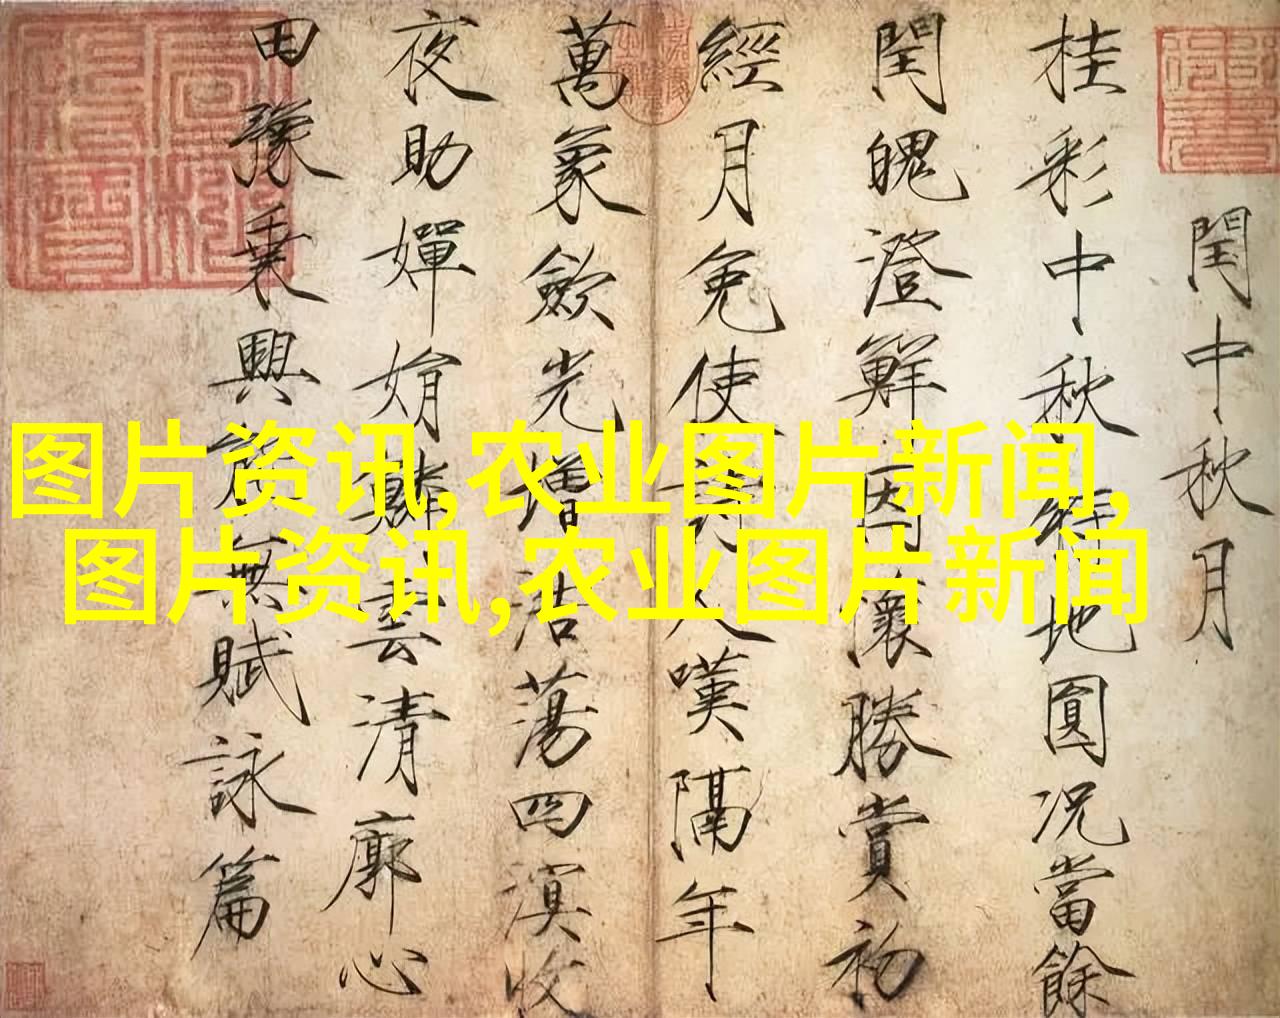 图片资讯,农业图片新闻,
图片资讯,农业图片新闻
閏中秋月
桂彩中秋特地圓况當餘
閏魄澄鮮因懷勝賞初
經月免使詩人嘆隔年
萬象歛光增浩蕩四溟收
夜助嬋娟鱗雲清廓心
田豫乗興能無賦詠篇